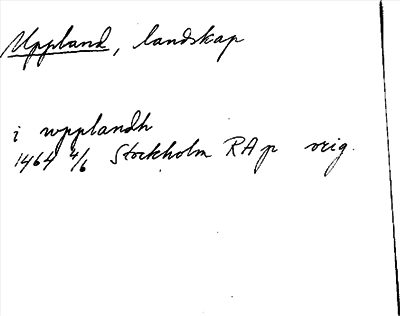 Uppland, landskap
i wpplandh
1464 4/6 Stockholm RAp orig.